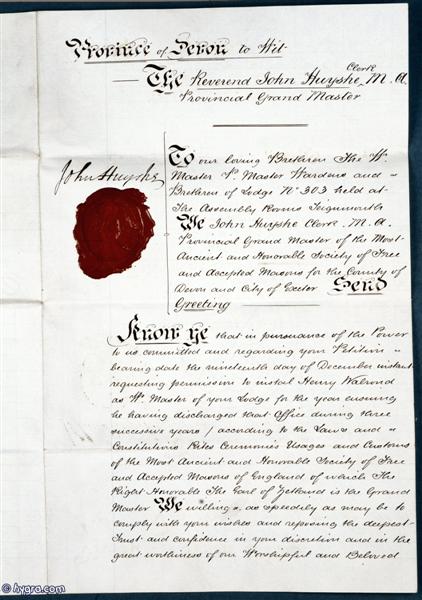 Province of Devon to Wit
Clerk
The Reverend John Huyshe M. A
Provincial Grand Master
John Huyshe
To our loving Brethren The W.
Master P. Master Wardens and
Brethren of Lodge No 303 held at
The Assembly Rooms Teignmouth
We John Huyshe Clerk. M. A.
Provincial Grand Master of the Most
Ancient and Honorable Society of Free
and Accepted Masons for the County of
Devon and City of Exeter Send
Greeting
Know Ye that in pursuance of the Power
to us committed and regarding your Petition
bearing date the nineteenth day of December instant
requesting permission to instal Henry Walrond
as W. Master of your Lodge for the year ensuing
he having discharged that Office during three
successive years / according to the Laws and
Constitutions Rites Ceremonies Usages and Customs
of the Most Ancient and Honorable Society of Free
and Accepted Masons of England of which The
Right Honorable The Earl of Zetland is the Grand
Master We willing as speedily as may be to
comply with your wishes and reposing the deepest
trust and confidence in your discretion and in the
great worthiness of our Worshipful and Beloved
© hygra.com